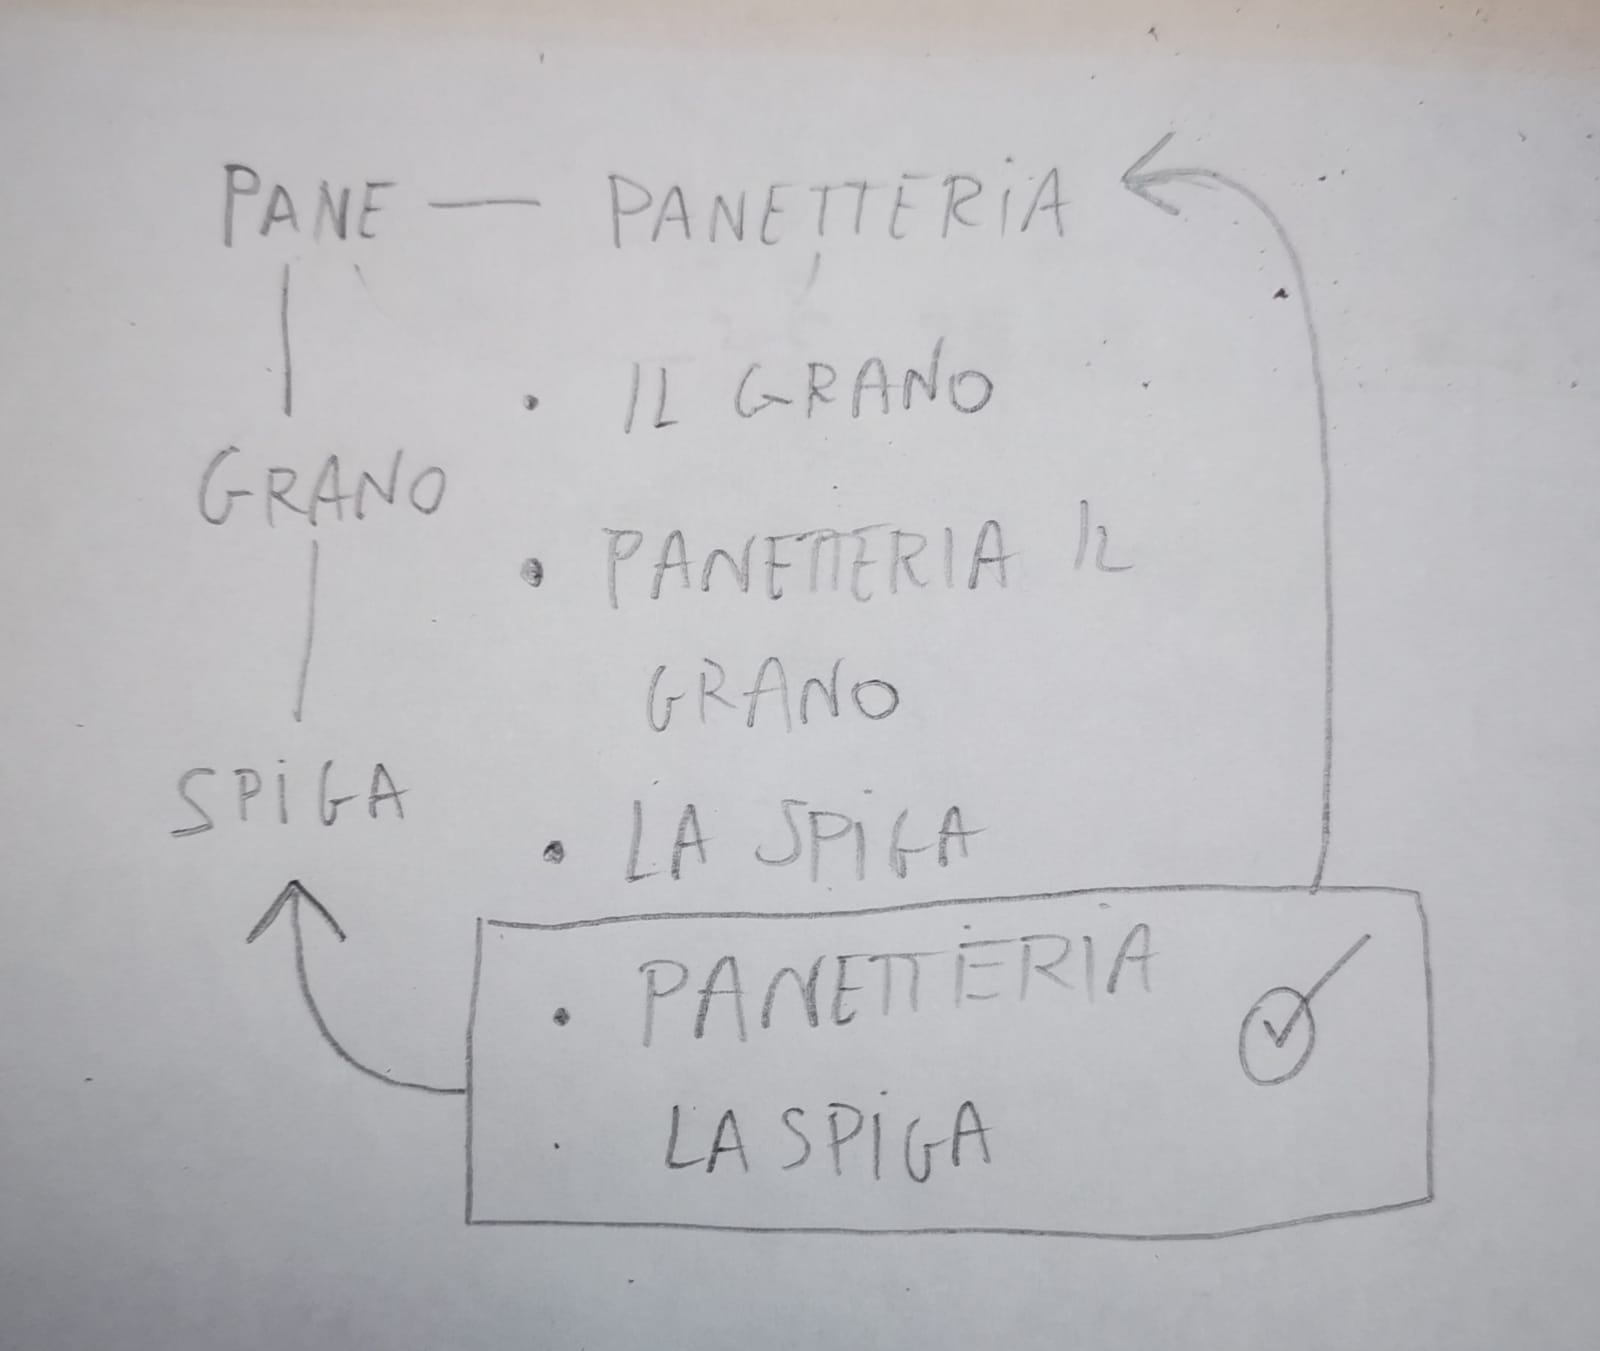 PANE — PANETTERIA
• IL GRANO
GRANO
• PANETTERIA IL
GRANO
SPIGA
• LA SPIGA
• PANETTERIA
LA SPIGA